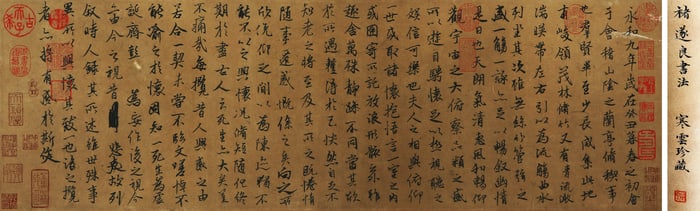 褚遂良書法 寒雲珍藏
永和九年歲在癸丑暮春之初會
于會稽山陰之蘭亭脩稧事
也群賢畢至少長咸集此地
有峻領茂林脩竹又有清流激
湍映帶左右引以為流觴曲水
列坐其次雖無絲竹管弦之
盛一觴一詠亦足以暢敘幽情
是日也天朗氣清惠風和暢仰
觀宇宙之大俯察品類之盛
所以遊目騁懷足以極視聽之
娛信可樂也夫人之相與俯仰
一世或取諸懷抱悟言一室之內
或因寄所託放浪形骸之外雖
趣舍萬殊靜躁不同當其欣
於所遇暫得於己怏然自足不
知老之將至及其所之既惓情
隨事遷感慨係之矣向之所
欣俛仰之間以為陳迹猶不
能不以之興懷況脩短隨化終
期於盡古人云死生亦大矣豈
不痛哉每攬昔人興感之由
若合一契未嘗不臨文嗟悼不
能喻之於懷固知一死生為虛
誕齊彭殤為妄作後之視今
亦由今之視昔悲夫故列
敘時人錄其所述雖世殊事
異所以興懷其致一也後之攬
者亦將有感於斯文
古希天子